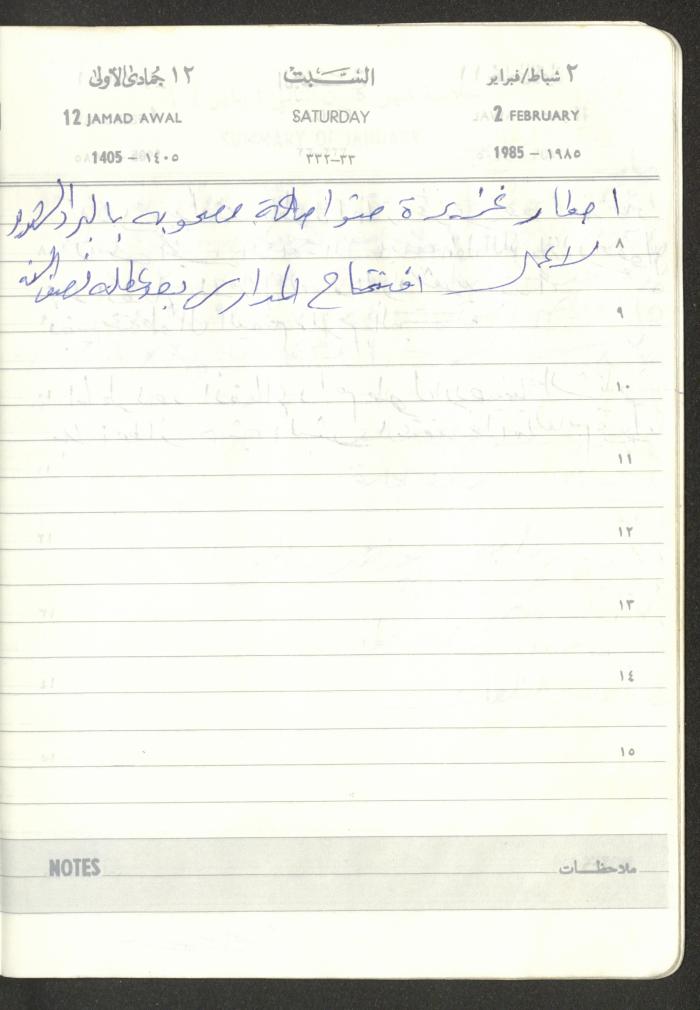 ٢ شباط/فبراير السبت ١٢ جمادى الأولى
2 FEBRUARY SATURDAY 12 JAMAD AWAL
1985 – ١٩٨٥ ٣٣–٣٣٢ 1405 – ١٤٠٥
امطار غزيرة متواصلة مصحوبه بالبرد الشديد
٨
لا عمل افتتاح المدارس بعد عطله نصف السنه
٩
١٠
١١
١٢
١٣
١٤
١٥
NOTES ملاحظات